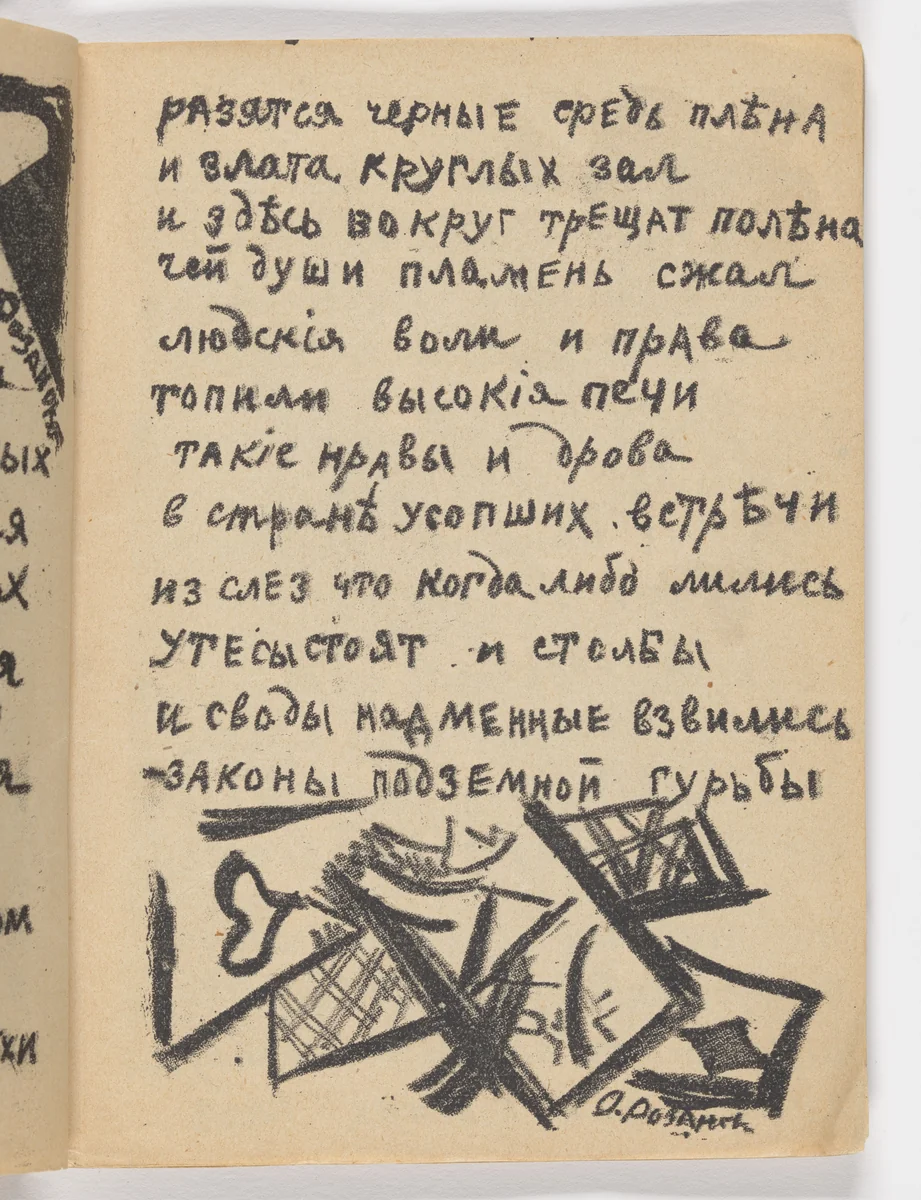 разятся черные средь плѣна
и злата круглых зал
и здѣсь вокруг трещат полѣна
чей души пламень сжал
людскія воли и права
топили высокія печи
такіе нравы и дрова
в странѣ усопших встрѣчи
из слез что когда либо лились
утесы стоят и столбы
и своды надменные взвились
законы подземной гурьбы
О. Розанк
ых
я
х
я
я
ом
хи